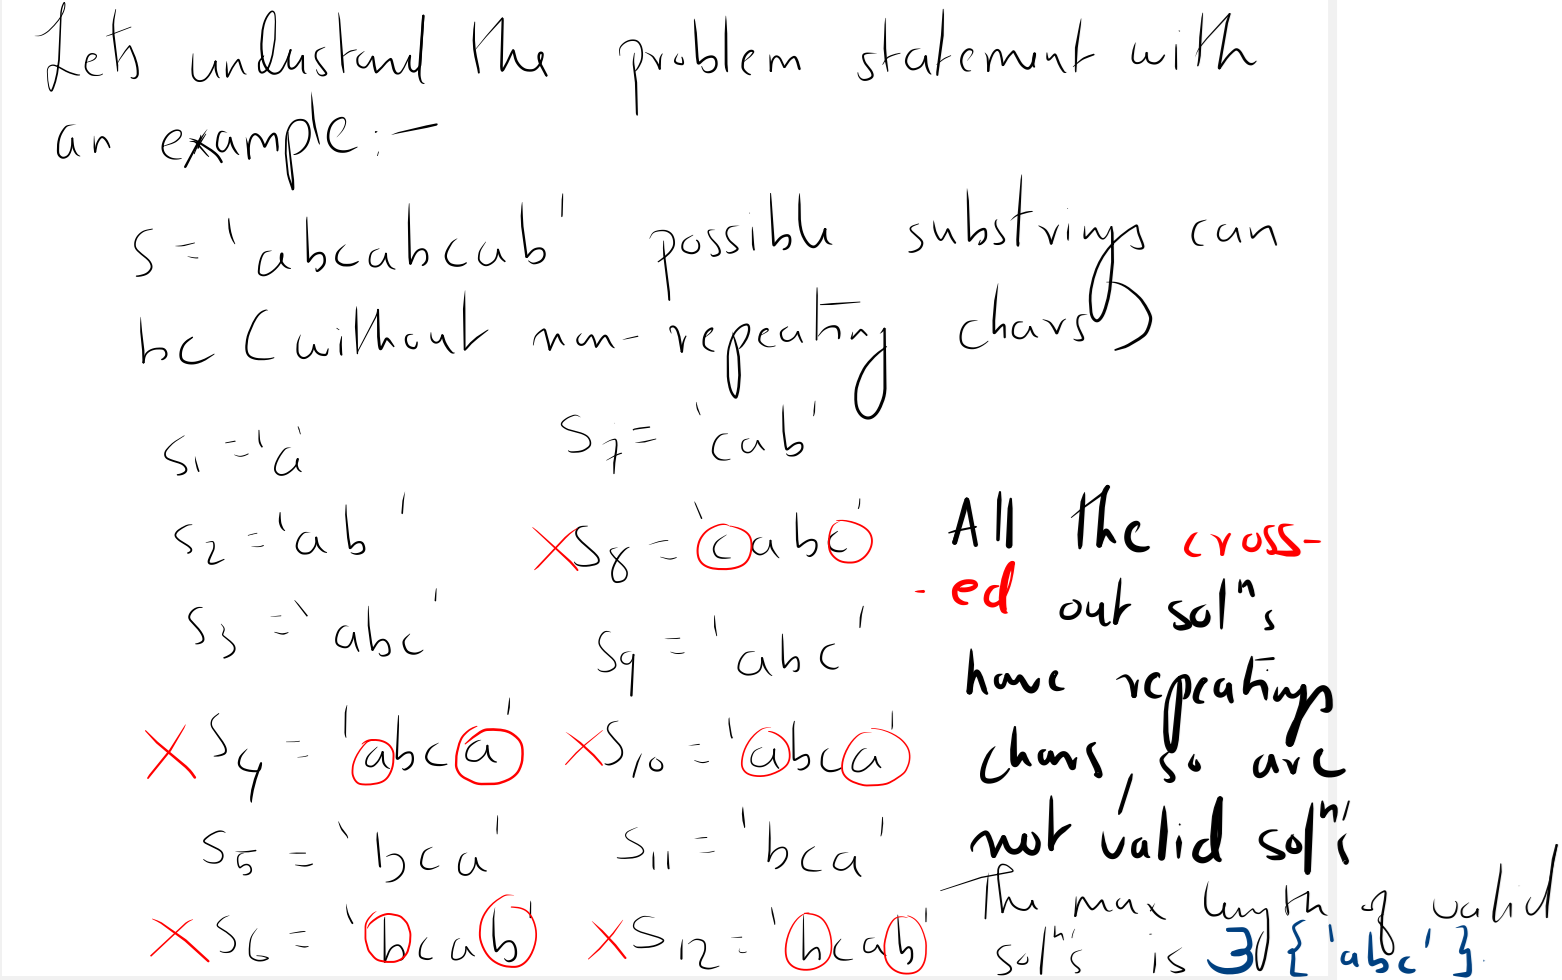 Lets understand the problem statement with
an example:-
S = 'abcabcab' possible substrings can
be (without non-repeating chars)
S1 = 'a'
S2 = 'ab'
S3 = 'abc'
X S4 = 'abca'
S5 = 'bca'
X S6 = 'bcab'
S7 = 'cab'
X S8 = 'cabc'
S9 = 'abc'
X S10 = 'abca'
S11 = 'bca'
X S12 = 'bcab'
All the cross-
-ed out solⁿs
have repeatings
chars, so are
not valid solⁿs
The max length of valid
solⁿs is 3 {'abc'}